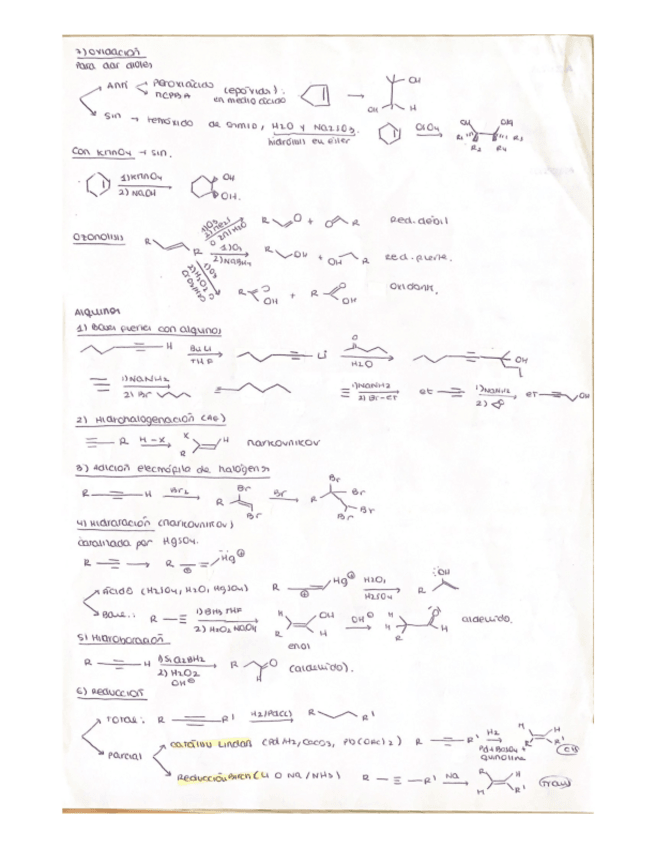 7) Oxidación
Para dar dioles
Anti
Peroxiácido
MCPBA
(epóxido):
en medio ácido
OH
OH
H
Sin → tetróxido de osmio, H2O y Na2SO3.
hidrólisis
OsO4
OH
OH
R1
R2
R3
R4
Con KMnO4 → sin.
1) KMnO4
2) NaOH
OH
OH.
Ozonólisis
R
R
1) O3
Zn/H2O
R
O
+
O
R
Red. débil
1) O3
2) NaBH4
R
OH
+
OH
R
Red. fuerte.
1) O3
2) H2O2
R
O
OH
+
R
O
OH
Oxidante.
Alquinos
1) Bases fuertes con alquinos
H
BuLi
THF
Li
O
H2O
OH
1) NaNH2
2) Br
1) NaNH2
2) Br-et
et
1) NaNH2
2)
et
OH
2) Hidrohalogenación (AE)
R
H-X
X
H
R
Markovnikov
3) Adición electrófila de halógenos
R
H
Br2
Br
R
Br
Br
R
Br
Br
Br
Br
4) Hidratación (Markovnikov)
Catalizada por HgSO4.
R
R
⊕
Hg⊕
Ácido (H2SO4, H2O, HgSO4)
R
⊕
Hg⊕
H2O,
H2SO4
R
:OH
Base:
R
1) BH3 THF
2) H2O2 NaOH
H
OH
R
H
enol
OH⊖
H
H
R
O
H
aldehído.
5) Hidroboración
R
H
1) Sia2BH2
2) H2O2
OH⊖
R
O
H
(aldehído).
6) Reducción
Total:
R
R'
H2/Pd(C)
R
R'
Parcial
Catáliu Lindlar
(Pd
CaCO3, Pb(OAc)2)
R
R'
H2
Pd+BaSO4
quinoline
H
H
R
R'
cis
Reducción Birch (Li o Na/NH3)
R
R'
Na
R
H
H
R'
Trans